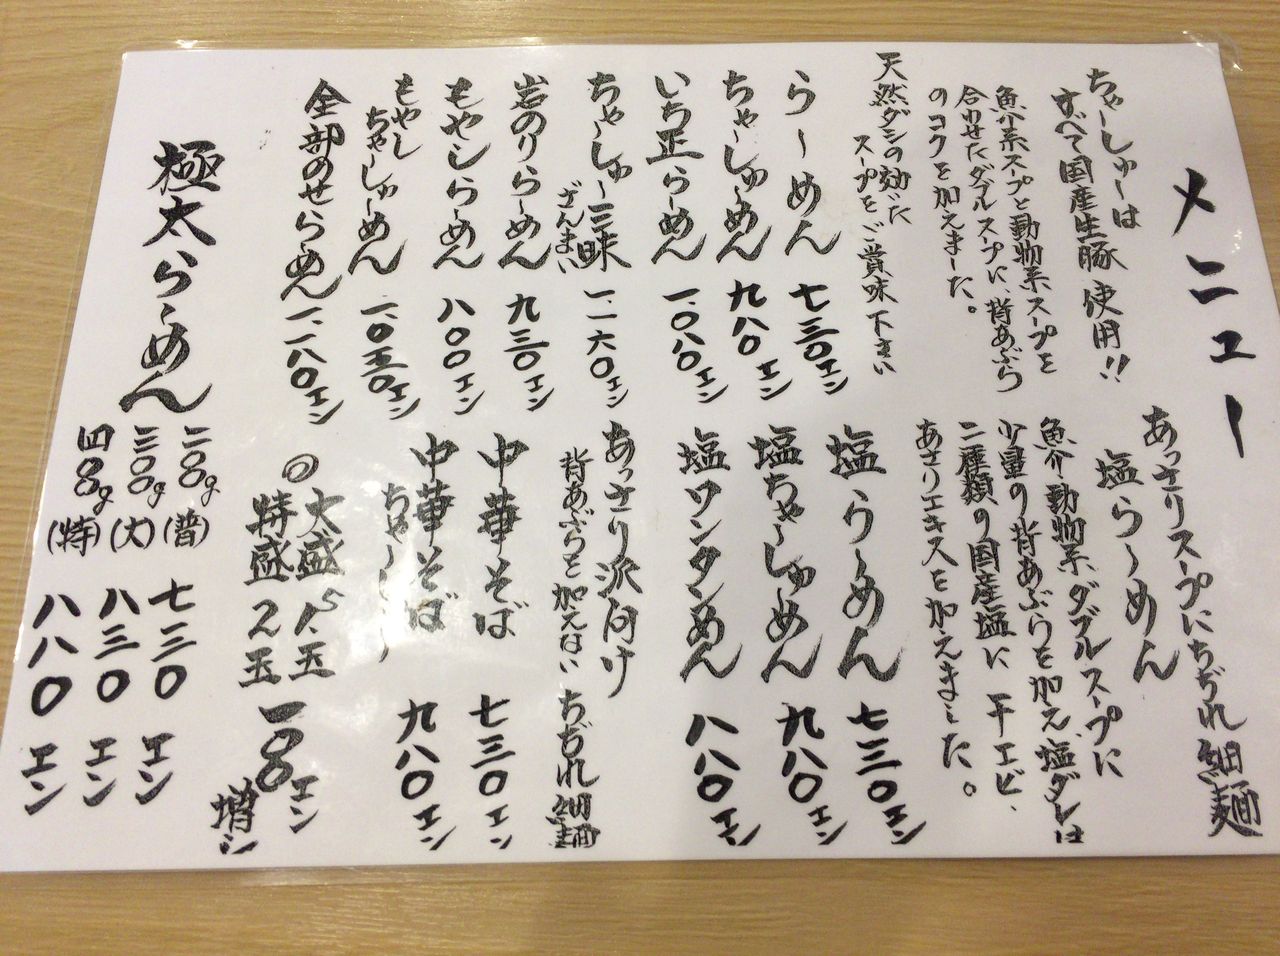 メニュー
ちゃーしゅーは
すべて国産生豚使用!!
魚介系スープと動物系スープを
合わせたダブルスープに、背あぶら
のコクを加えました。
天然ダシの効いた
スープをご賞味下さい
らーめん 七三〇エン
ちゃーしゅーめん 九八〇エン
いち正らーめん 一、〇八〇エン
ちゃーしゅー三昧 一、一六〇エン
ざんまい
岩のりらーめん 九三〇エン
もやしらーめん 八〇〇エン
もやし
ちゃーしゅーめん 一、〇五〇エン
全部のせらーめん 一、一八〇エン
あっさりスープにちぢれ細麺
塩らーめん
魚介、動物系、ダブルスープに
少量の背あぶらを加え、塩ダレは
二種類の国産塩に 干エビ、
あさりエキスを加えました。
塩らーめん 七三〇エン
塩ちゃーしゅーめん 九八〇エン
塩ワンタンめん 八八〇エン
あっさり派向け
背あぶらを加えない ちぢれ細麺
中華そば 七三〇エン
中華そば
ちゃーしゅー 九八〇エン
◎大盛 1.5玉
特盛 2玉
一〇〇エン
増シ
極太らーめん
二〇〇g(普) 七三〇エン
三〇〇g(大) 八三〇エン
四〇〇g(特) 八八〇エン